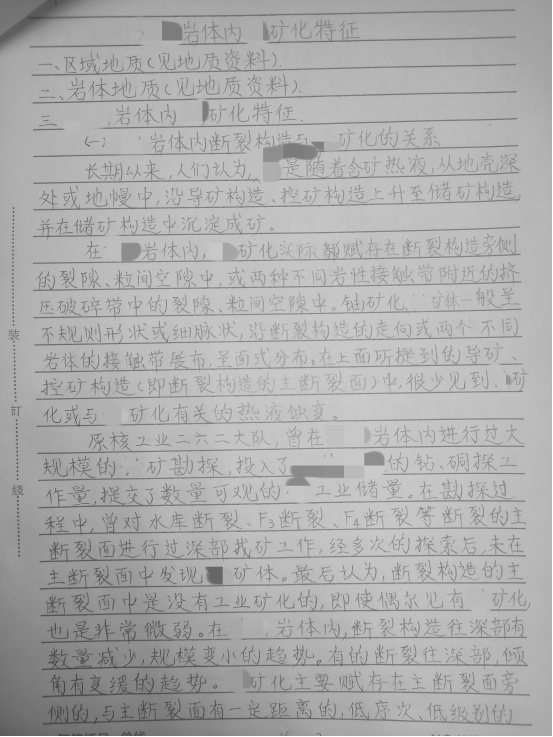 岩体内 矿化特征
一、区域地质(见地质资料).
二、岩体地质(见地质资料).
三 岩体内 矿化特征.
(一) 岩体内断裂构造与 矿化的关系
长期以来,人们认为, 是随着含矿热液,从地壳深
处或地幔中,沿导矿构造、控矿构造上升至储矿构造,
并在储矿构造中沉淀成矿。
在 岩体内, 矿化实际都赋存在断裂构造旁侧
的裂隙、粒间空隙中,或两种不同岩性接触带附近的挤
压破碎带中的裂隙、粒间空隙中。铀矿化, 矿体一般呈
不规则形状或细脉状,沿断裂构造的走向或两个不同
岩体的接触带展布,呈面式分布。在上面所提到的导矿、
控矿构造(即断裂构造的主断裂面)中,很少见到 矿
化或与 矿化有关的热液蚀变。
原核工业二六二大队,曾在 岩体内进行过大
规模的 矿勘探,投入了 的钻、硐探工
作量,提交了数量可观的 工业储量。在勘探过
程中,曾对水库断裂、F3断裂、F4断裂等断裂的主
断裂面进行过深部找矿工作,经多次的探索后,未在
主断裂面中发现 矿体。最后认为,断裂构造的主
断裂面中是没有工业矿化的,即使偶尔见有 矿化,
也是非常微弱。在 岩体内,断裂构造往深部有
数量减少,规模变小的趋势。有的断裂往深部,倾
角有变缓的趋势。 矿化主要赋存在主断裂面旁
侧的,与主断裂面有一定距离的,低序次、低级别的
装
订
线